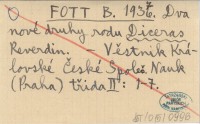 FOTT B. 1937. Dva
nové druhy rodu Diceras
Reverdin. – Věstník Krá-
lovské České Společ. Nauk
(Praha) třída II: 1-7.